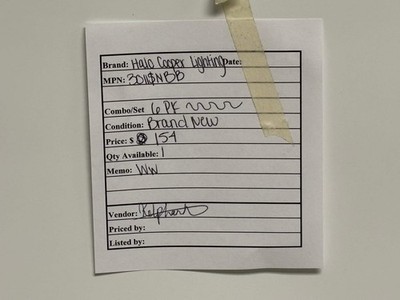 Brand: Halo Cooper Lighting Date:
MPN: 3011SNBB
Combo/Set 6 PK
Condition: Brand New
Price: $ 154
Qty Available: 1
Memo: WW
Vendor:
Priced by:
Listed by: